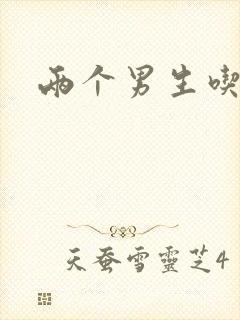 两个男生喫
天蚕雪靈芝4